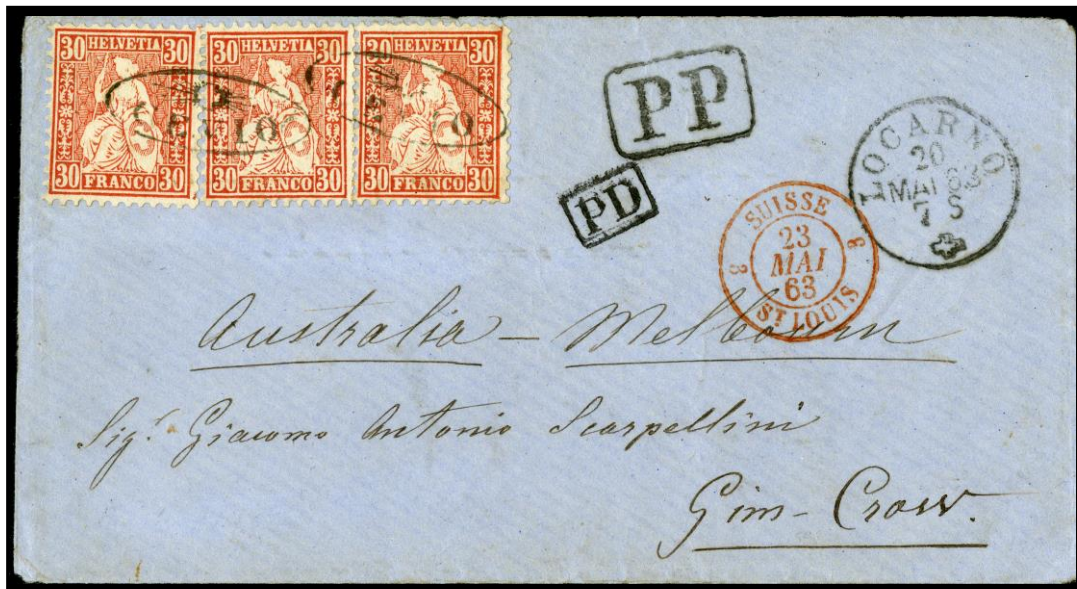 30 HELVETIA 30
30 FRANCO 30
30 HELVETIA 30
30 FRANCO 30
30 HELVETIA 30
30 FRANCO 30
PP
PD
LOCARNO
20
MAI 63
7 S
SUISSE
23
MAI
63
8 8
ST LOUIS
Australia - Melbourn
Sigr. Giacomo Antonio Scarpellini
Gim-Crow.